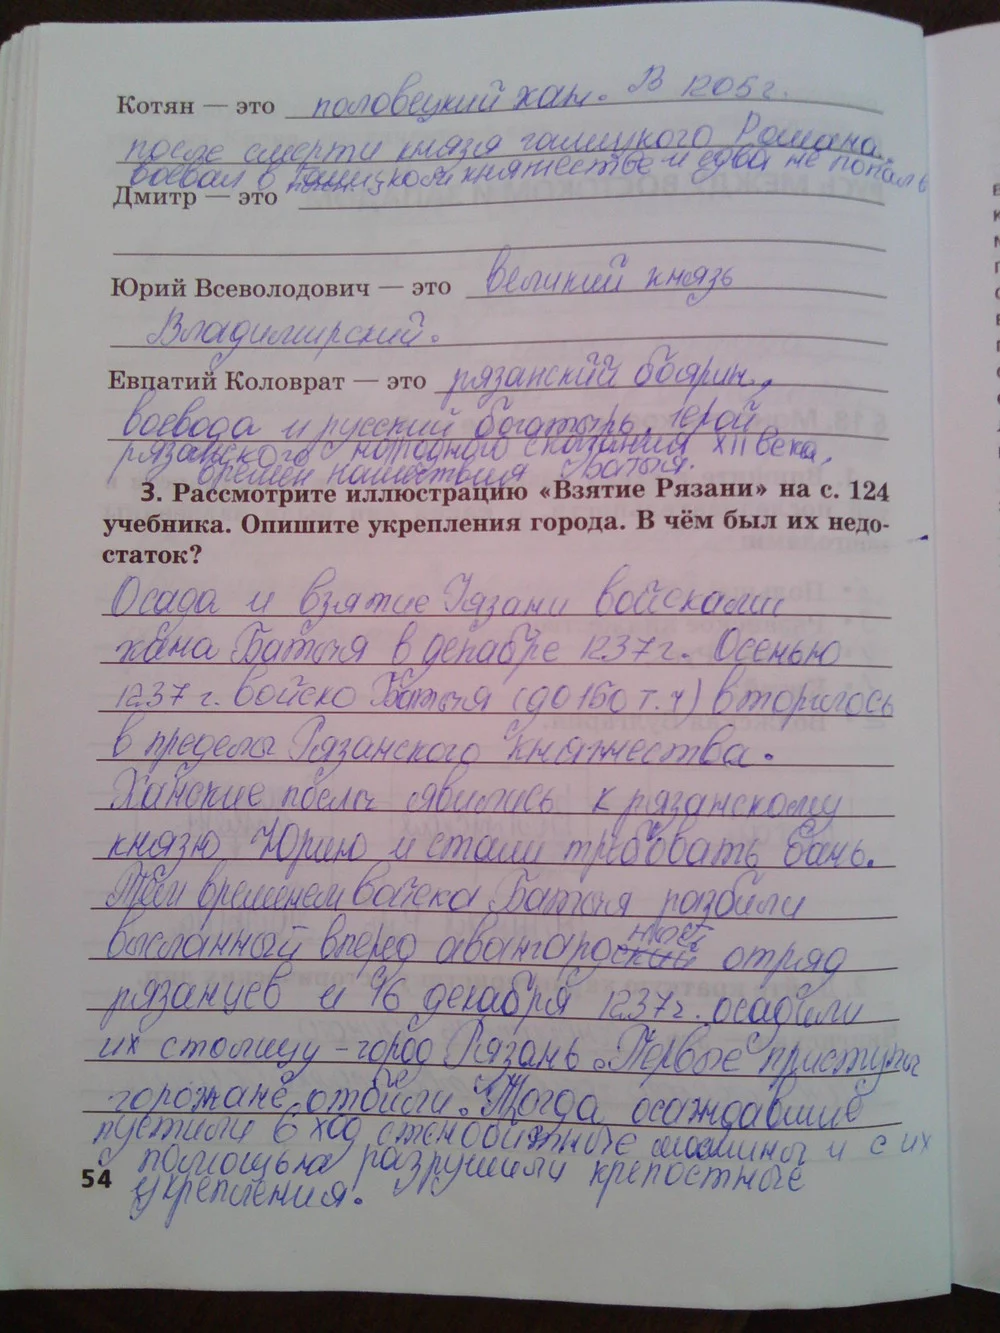 Котян — это половецкий хан. В 1205 г.
после смерти князя галицкого Романа
воевал в Галицком княжестве и едва не попаль
Дмитр — это
Юрий Всеволодович — это великий князь
Владимирский.
Евпатий Коловрат — это рязанский боярин,
воевода и русский богатырь, герой
рязанского народного сказания XII века,
времён нашествия Батыя.
3. Рассмотрите иллюстрацию «Взятие Рязани» на с. 124
учебника. Опишите укрепления города. В чём был их недо-
статок?
Осада и взятие Рязани войсками
хана Батыя в декабре 1237 г. Осенью
1237 г. войско Батыя (до 150 т. ч) вторглось
в пределы Рязанского княжества.
Ханские послы явились к рязанскому
князю Юрию и стали требовать дань.
Тем временем войска Батыя разбили
высланный вперёд авангардный отряд
рязанцев и 16 декабря 1237 г. осадили
их столицу - город Рязань. Первые приступы
горожане отбили. Тогда осаждавшие
пустили в ход стенобитные машины и с их
помощью разрушили крепостные
укрепления.
54